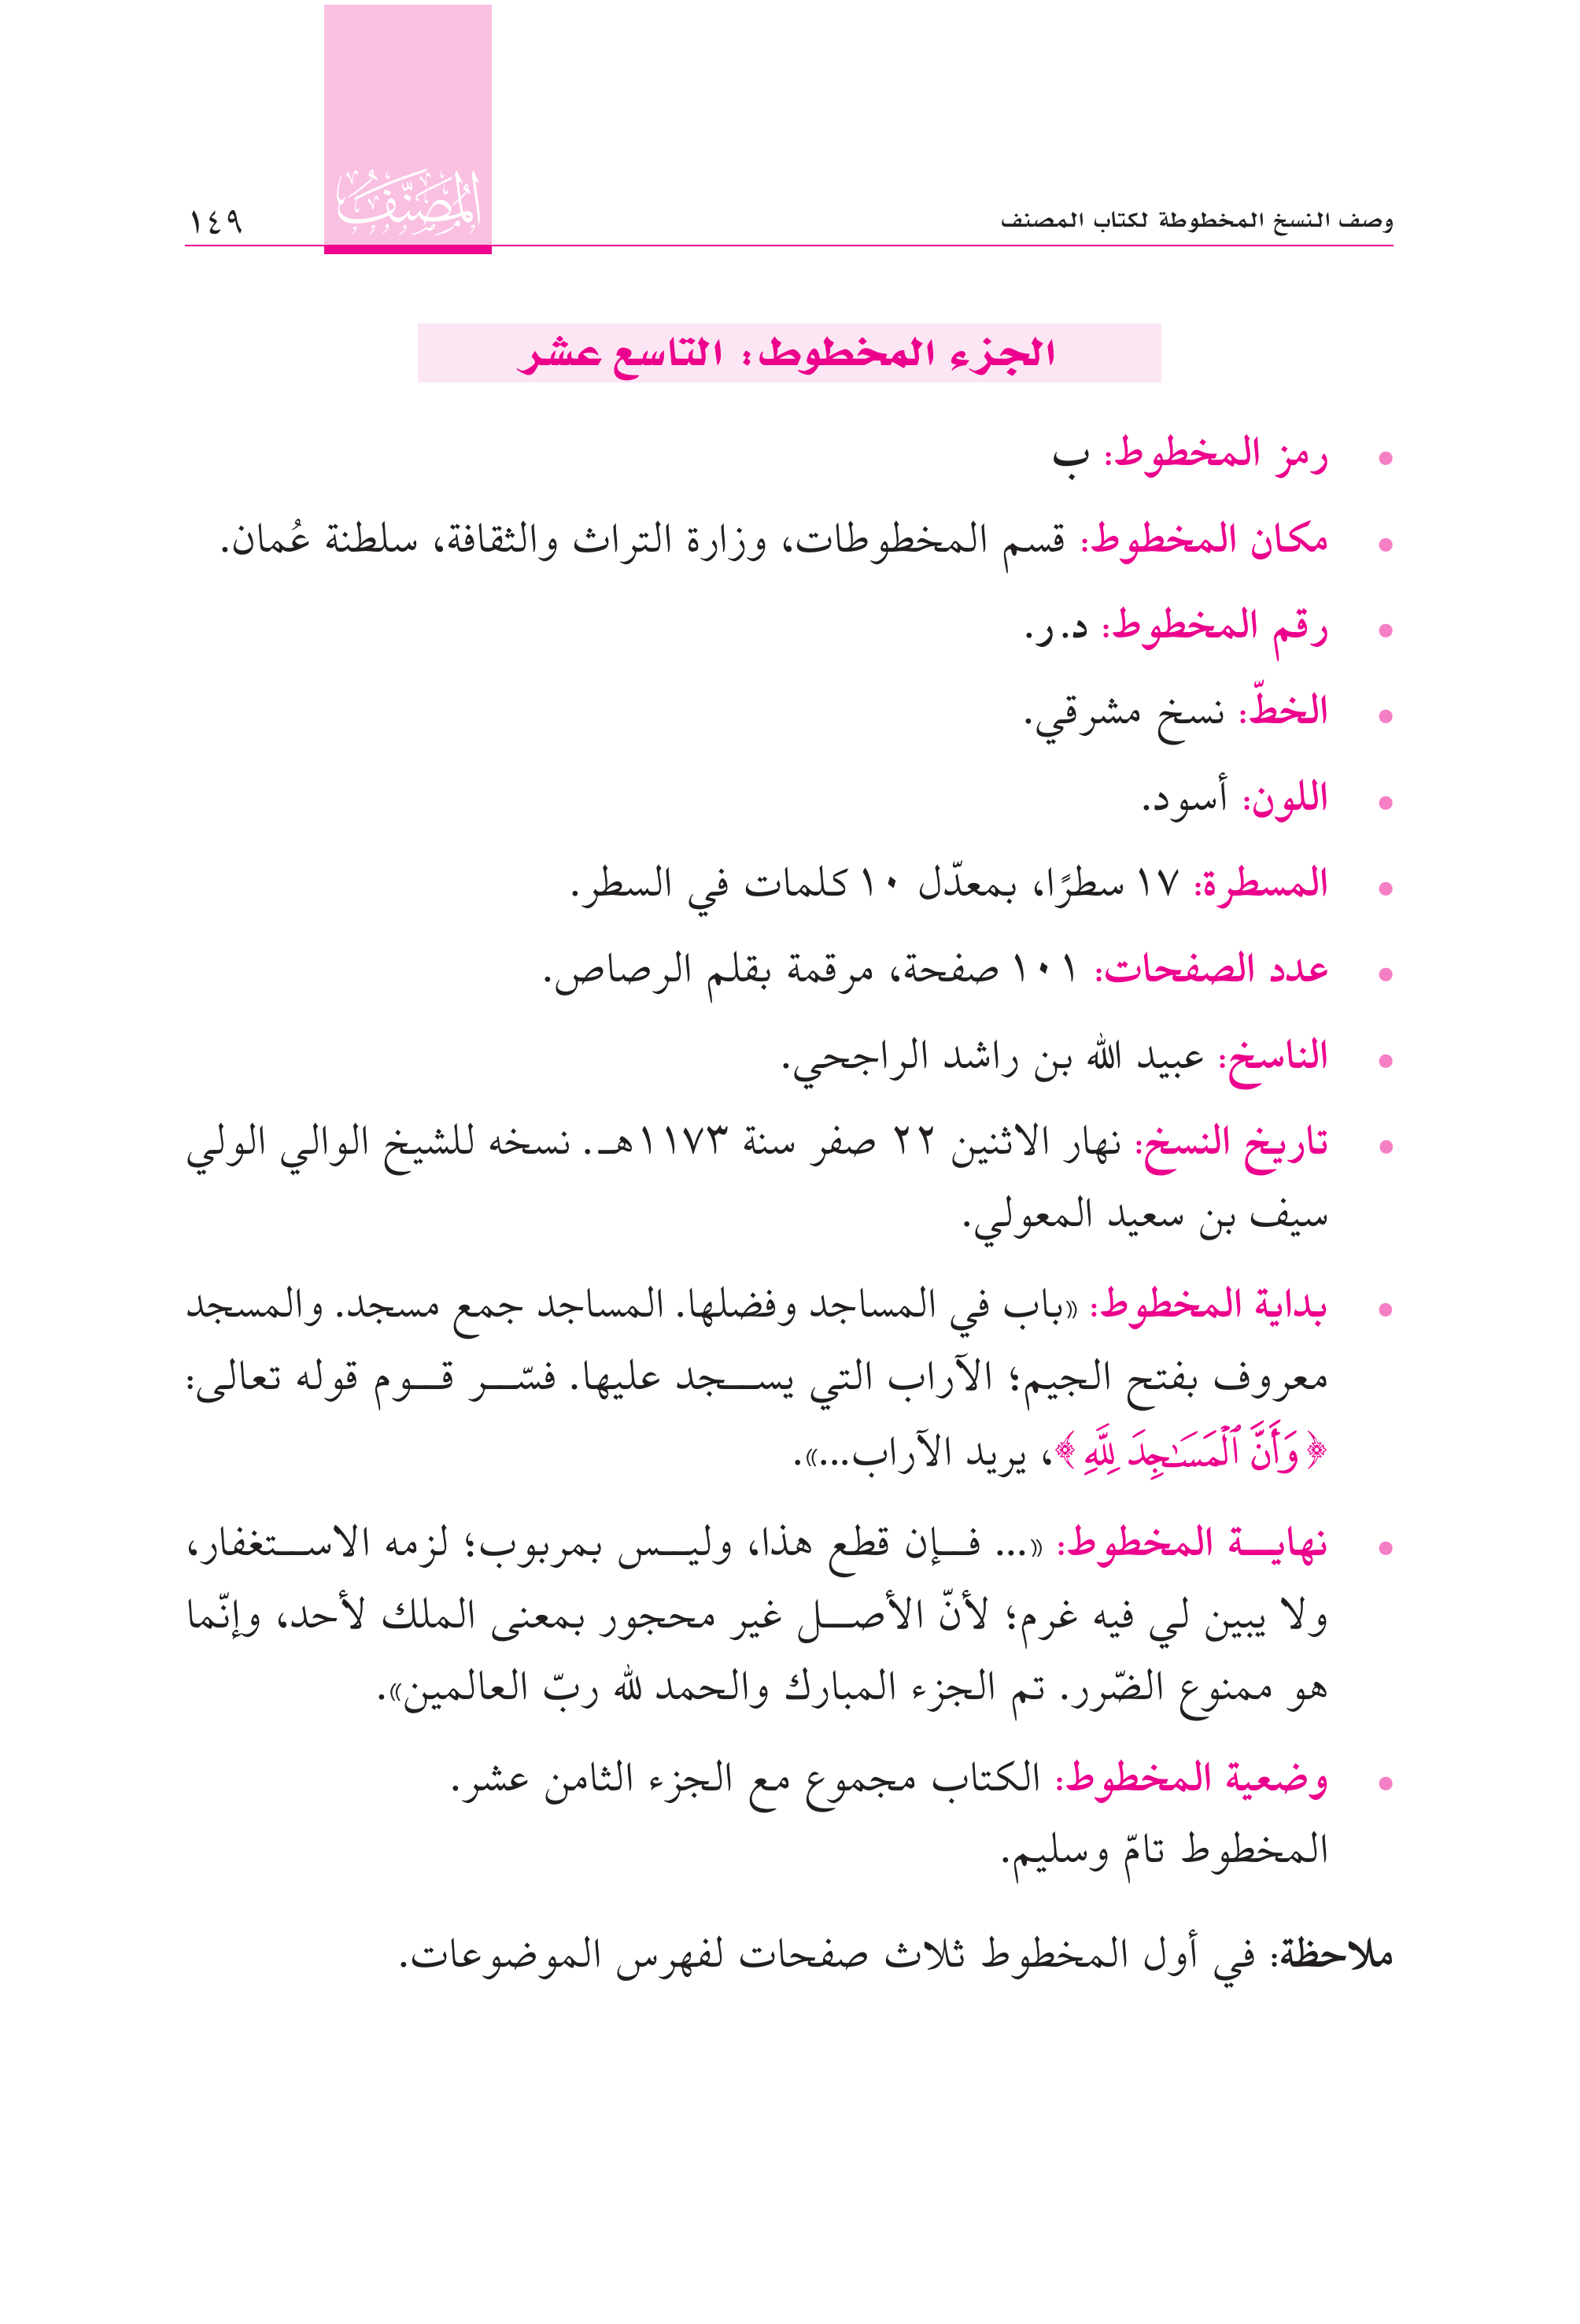 وصف النسخ المخطوطة لكتاب المصنف
المُصَنَّف
١٤٩
الجزء المخطوط: التاسع عشر
• رمز المخطوط: ب
• مكان المخطوط: قسم المخطوطات، وزارة التراث والثقافة، سلطنة عُمان.
• رقم المخطوط: د.ر.
• الخطّ: نسخ مشرقي.
• اللون: أسود.
• المسطرة: ١٧ سطرًا، بمعدّل ١٠ كلمات في السطر.
• عدد الصفحات: ١٠١ صفحة، مرقمة بقلم الرصاص.
• الناسخ: عبيد الله بن راشد الراجحي.
• تاريخ النسخ: نهار الاثنين ٢٢ صفر سنة ١١٧٣هـ. نسخه للشيخ الوالي الولي
سيف بن سعيد المعولي.
• بداية المخطوط: «باب في المساجد وفضلها. المساجد جمع مسجد. والمسجد
معروف بفتح الجيم؛ الآراب التي يسـجد عليها. فسّـر قـوم قوله تعالى:
﴿وَأَنَّ ٱلْمَسَـٰجِدَ لِلَّهِ﴾، يريد الآراب...».
• نهايـة المخطوط: «... فـإن قطع هذا، وليـس بمربوب؛ لزمه الاسـتغفار،
ولا يبين لي فيه غرم؛ لأنّ الأصـل غير محجور بمعنى الملك لأحد، وإنّما
هو ممنوع الضّرر. تم الجزء المبارك والحمد لله ربّ العالمين».
• وضعية المخطوط: الكتاب مجموع مع الجزء الثامن عشر.
المخطوط تامّ وسليم.
ملاحظة: في أول المخطوط ثلاث صفحات لفهرس الموضوعات.